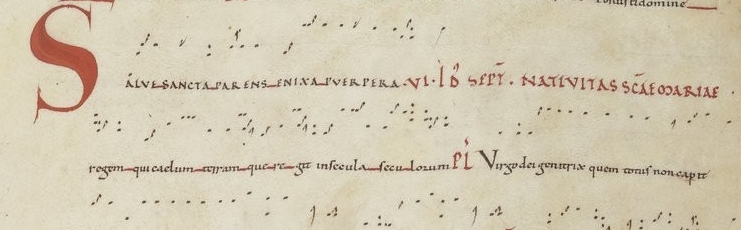 domine
SALVE SANCTA PARENS ENIXA PUERPERA. VI. ID SEPT. NATIVITAS SCAE MARIAE
regem qui caelum terram que regit in secula seculorum Ps Virgo dei genitrix quem totus non capit